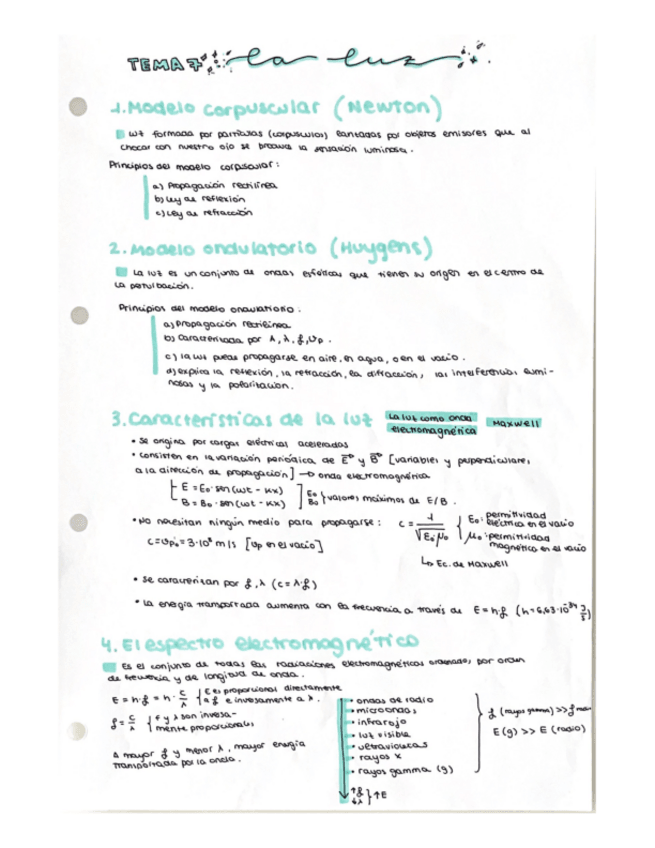 TEMA 7: la luz
1. Modelo corpuscular (Newton)
luz formada por partículas (corpúsculos) lanzadas por objetos emisores que al
chocar con nuestro ojo se produce la sensación luminosa.
Principios del modelo corpuscular:
a) Propagación rectilínea
b) Ley de reflexión
c) Ley de refracción
2. Modelo ondulatorio (Huygens)
La luz es un conjunto de ondas esféricas que tienen su origen en el centro de
la perturbación.
Principios del modelo ondulatorio:
a) Propagación rectilínea
b) Caracterizada por A, λ, f, Vp.
c) la luz puede propagarse en aire, en agua, o en el vacío.
d) explica la reflexión, la refracción, la difracción, las interferencias lumi-
nosas y la polarización.
3. Características de la luz La luz como onda electromagnética Maxwell
• Se origina por cargas eléctricas aceleradas
• consisten en la variación periódica de E y B [variables y perpendiculares
a la dirección de propagación] → onda electromagnética
E = E₀ · sen (wt - kx)
B = B₀ · sen (wt - kx)
E₀ B₀ } valores máximos de E/B.
• No necesitan ningún medio para propagarse: c = 1/√ε₀·μ₀
ε₀: permitividad eléctrica en el vacío
μ₀: permitividad magnética en el vacío
c = Vp₀ = 3·10⁸ m/s [Vp en el vacío]
↳ Ec. de Maxwell
• Se caracterizan por f, λ (c = λ·f)
• La energía transportada aumenta con la frecuencia a través de E = h·f (h = 6,63·10⁻³⁴ J/s)
4. El espectro electromagnético
Es el conjunto de todas las radiaciones electromagnéticas ordenadas por orden
de frecuencia y de longitud de onda.
E = h·f = h · c/λ { E es proporcional directamente
a f e inversamente a λ.
f = c/λ { f y λ son inversa-
mente proporcionales
A mayor f y menor λ, mayor energía
transportada por la onda.
• ondas de radio
• microondas
• infrarrojo
• luz visible
• ultravioletas
• rayos x
• rayos gamma (g)
↑f ↓λ } ↑E
f (rayos gamma) >> f
E(g) >> E (radio)